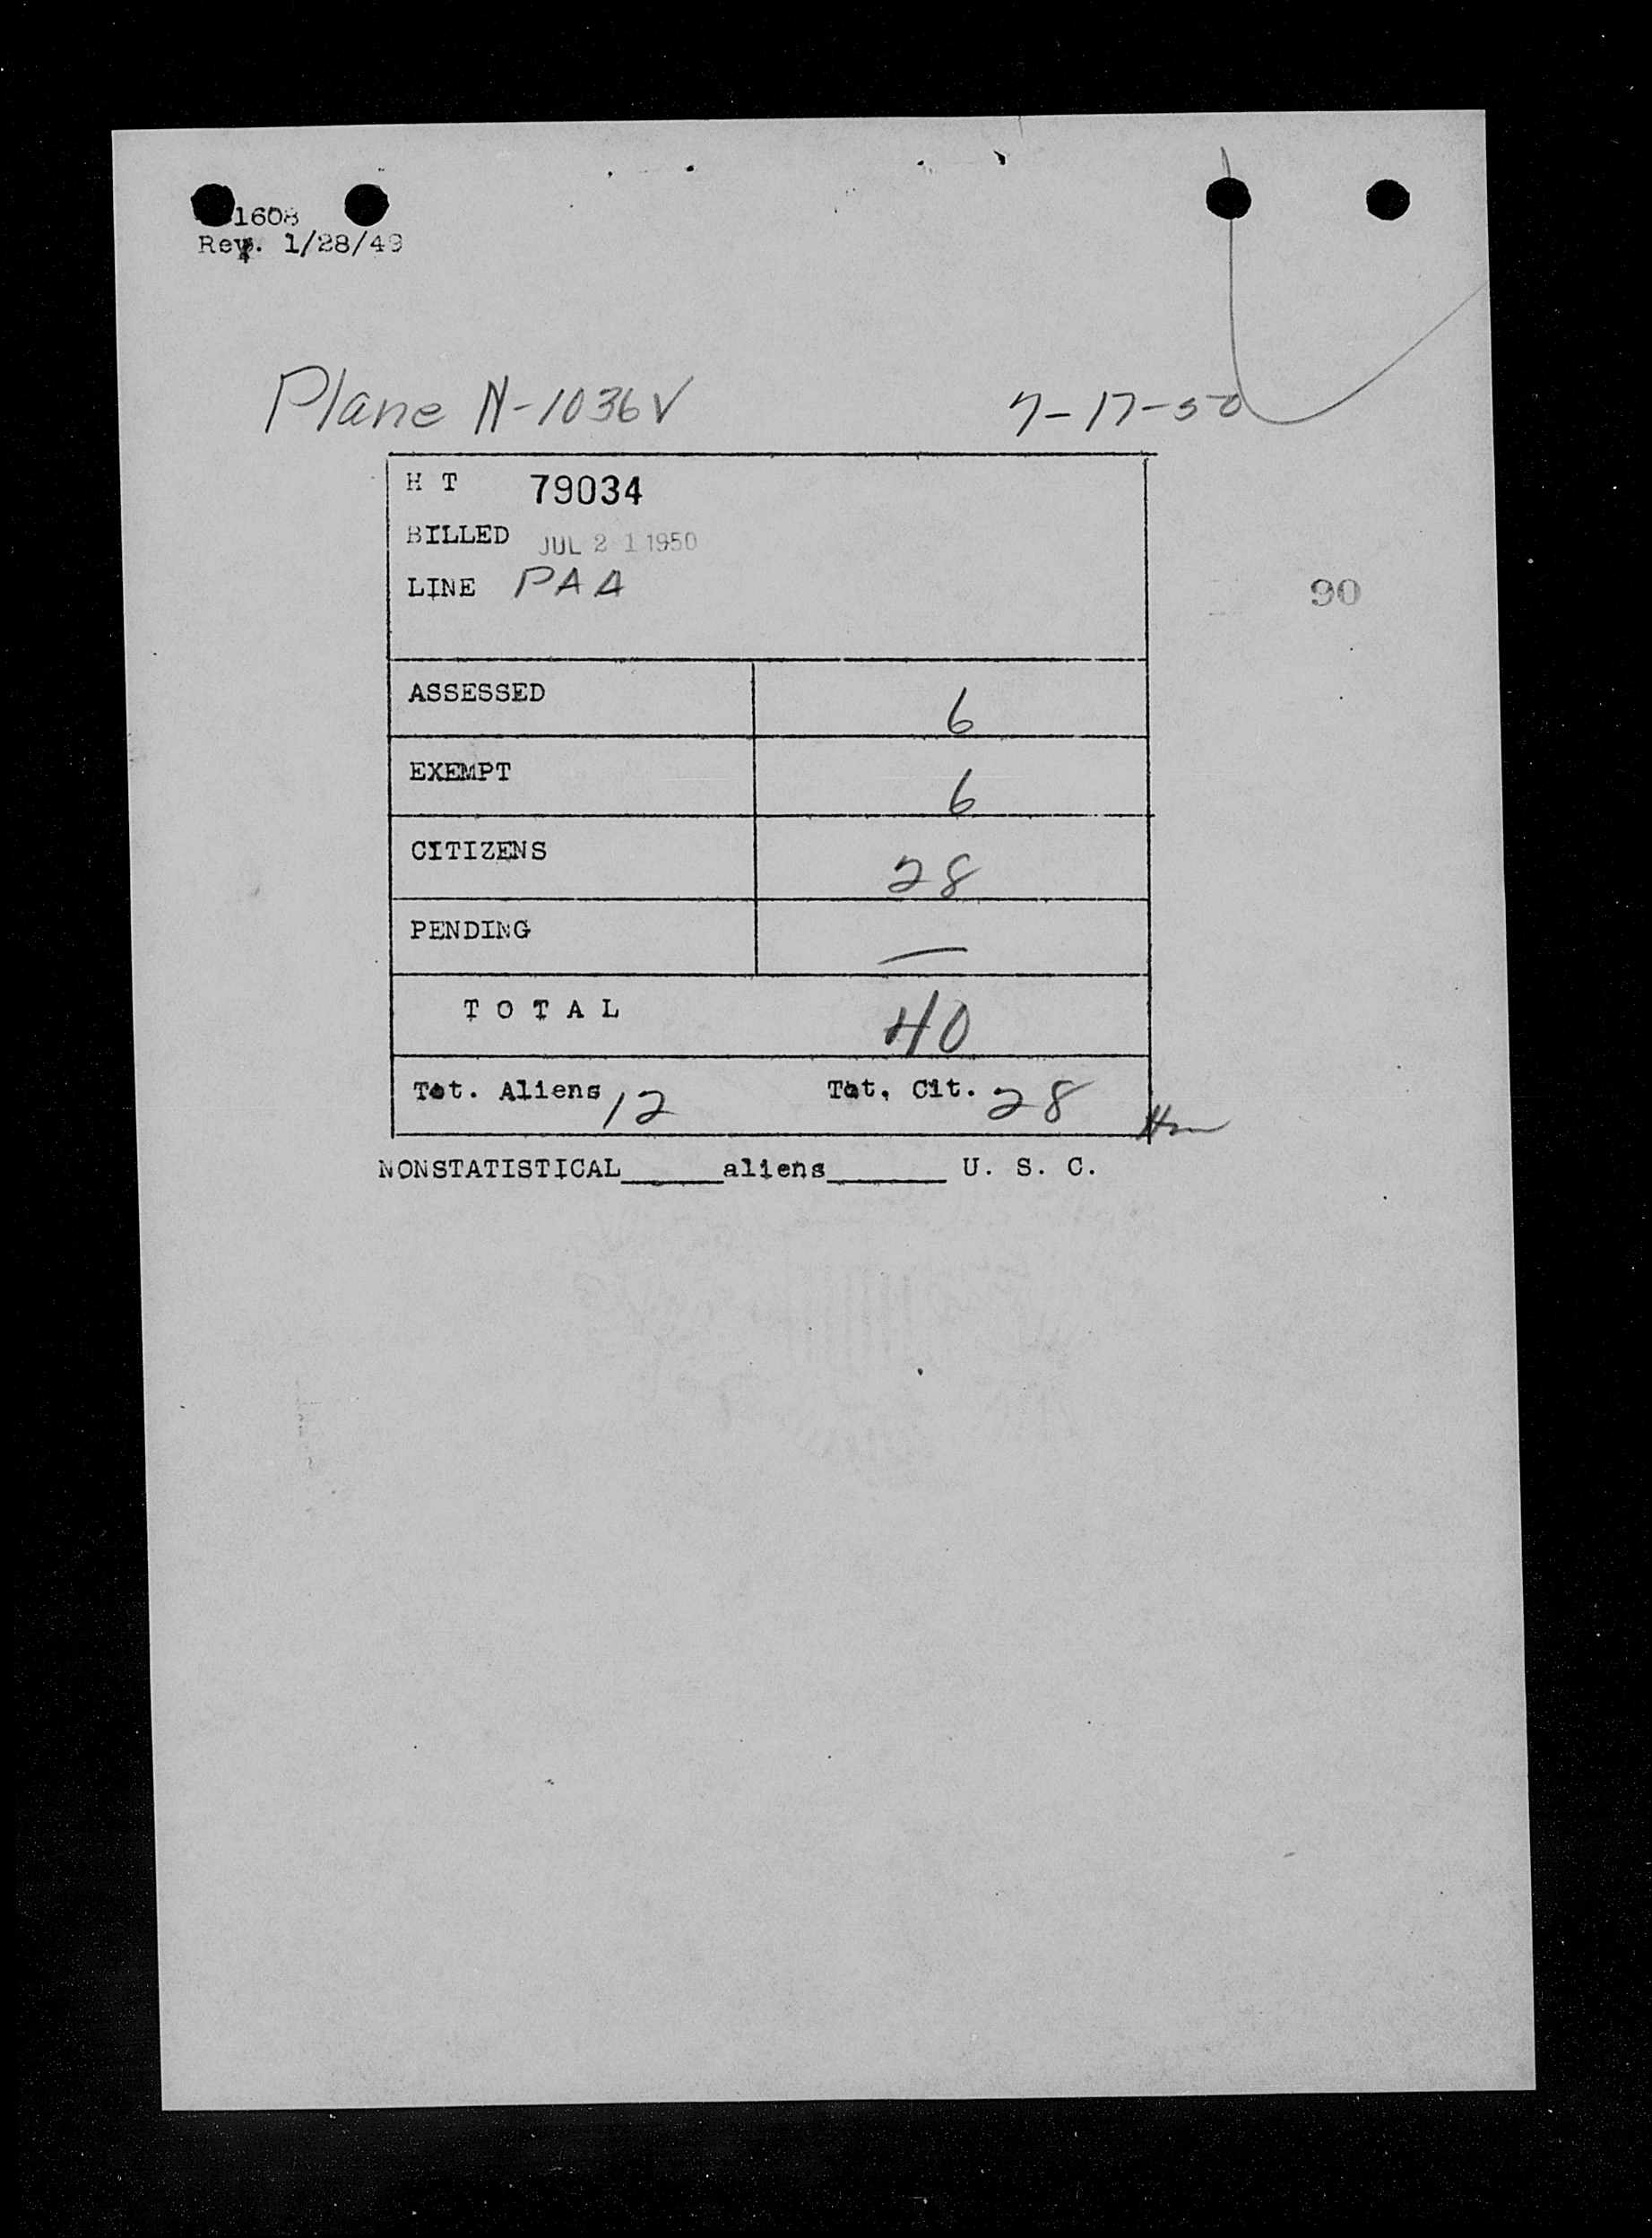 1608
Rev. 1/28/49
Plane N-1036V 7-17-50
H T 79034
BILLED JUL 21 1950
LINE PAA
90
ASSESSED 6
EXEMPT 6
CITIZENS 28
PENDING —
TOTAL 40
Tot. Aliens 12 Tot. Cit. 28
NONSTATISTICAL_____aliens______ U. S. C.